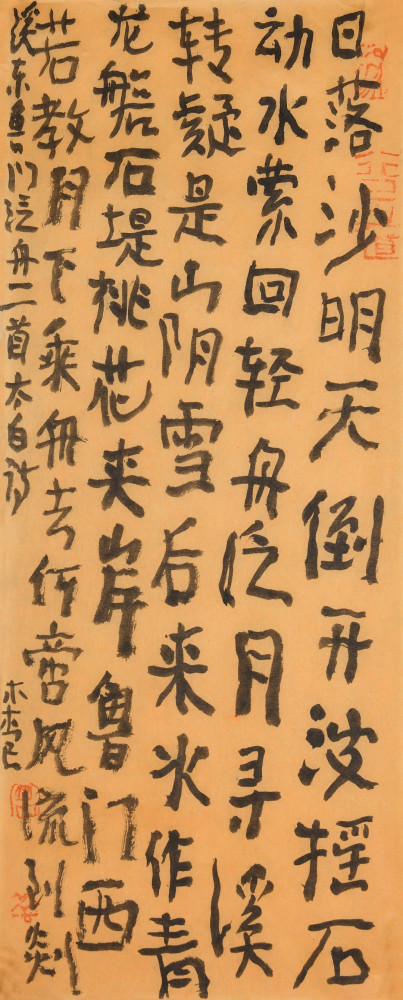 日落沙明天倒开波摇石
动水萦回轻舟泛月寻溪
转疑是山阴雪后来水作青
龙盘石堤桃花夹岸鲁门西
若教月下乘舟去何啻风流到剡
溪东鲁门泛舟二首太白诗